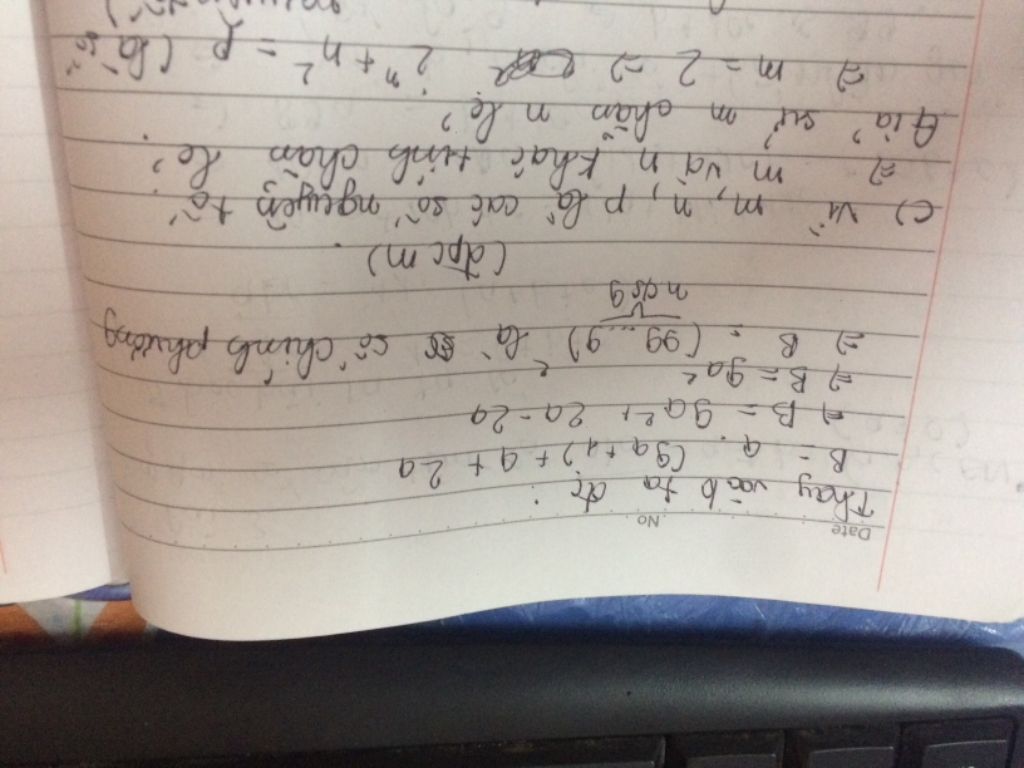 Date No
Thay vào ta đc:
B = a. (9a + 1) + a + 2a
⇒ B = 9a² + 2a - 2a
⇒ B = 9a²
⇒ B = (99...9)² là số chính phương
n cs 9
(đpcm)
c) vì m, n, p là các số nguyên tố
⇒ m và n khác tính chẵn lẻ.
Giả sử m chẵn n lẻ?
⇒ m = 2 ⇒ 2ⁿ + n² = p (là số
nguyên tố)